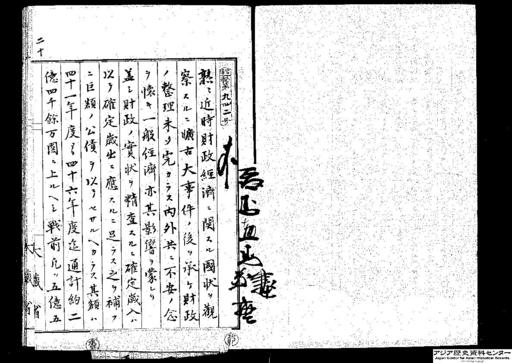 二十
熟ニ近時財政経済ニ関スル國状ヲ観
察スルニ曠古大事件ノ後ヲ承ケ財政
ノ整理未タ完カラス内外共ニ不安ノ念
ヲ懐キ一般経済亦其影響ヲ蒙レリ
蓋シ財政ノ實状ヲ精査スルニ確定歳入ハ
以テ確定歳出ニ應スルニ足ラス之ヲ補フ
ニ巨額ノ公債ヲ以テセサルヘカラス其額ハ
四十一年度ヨリ四十六年度迄通計約二
億四千餘万圓ニ上ルヘシ戦前凡ソ五億五
大藏省
アジア歴史資料センター
Japan Center for Asian Historical Records